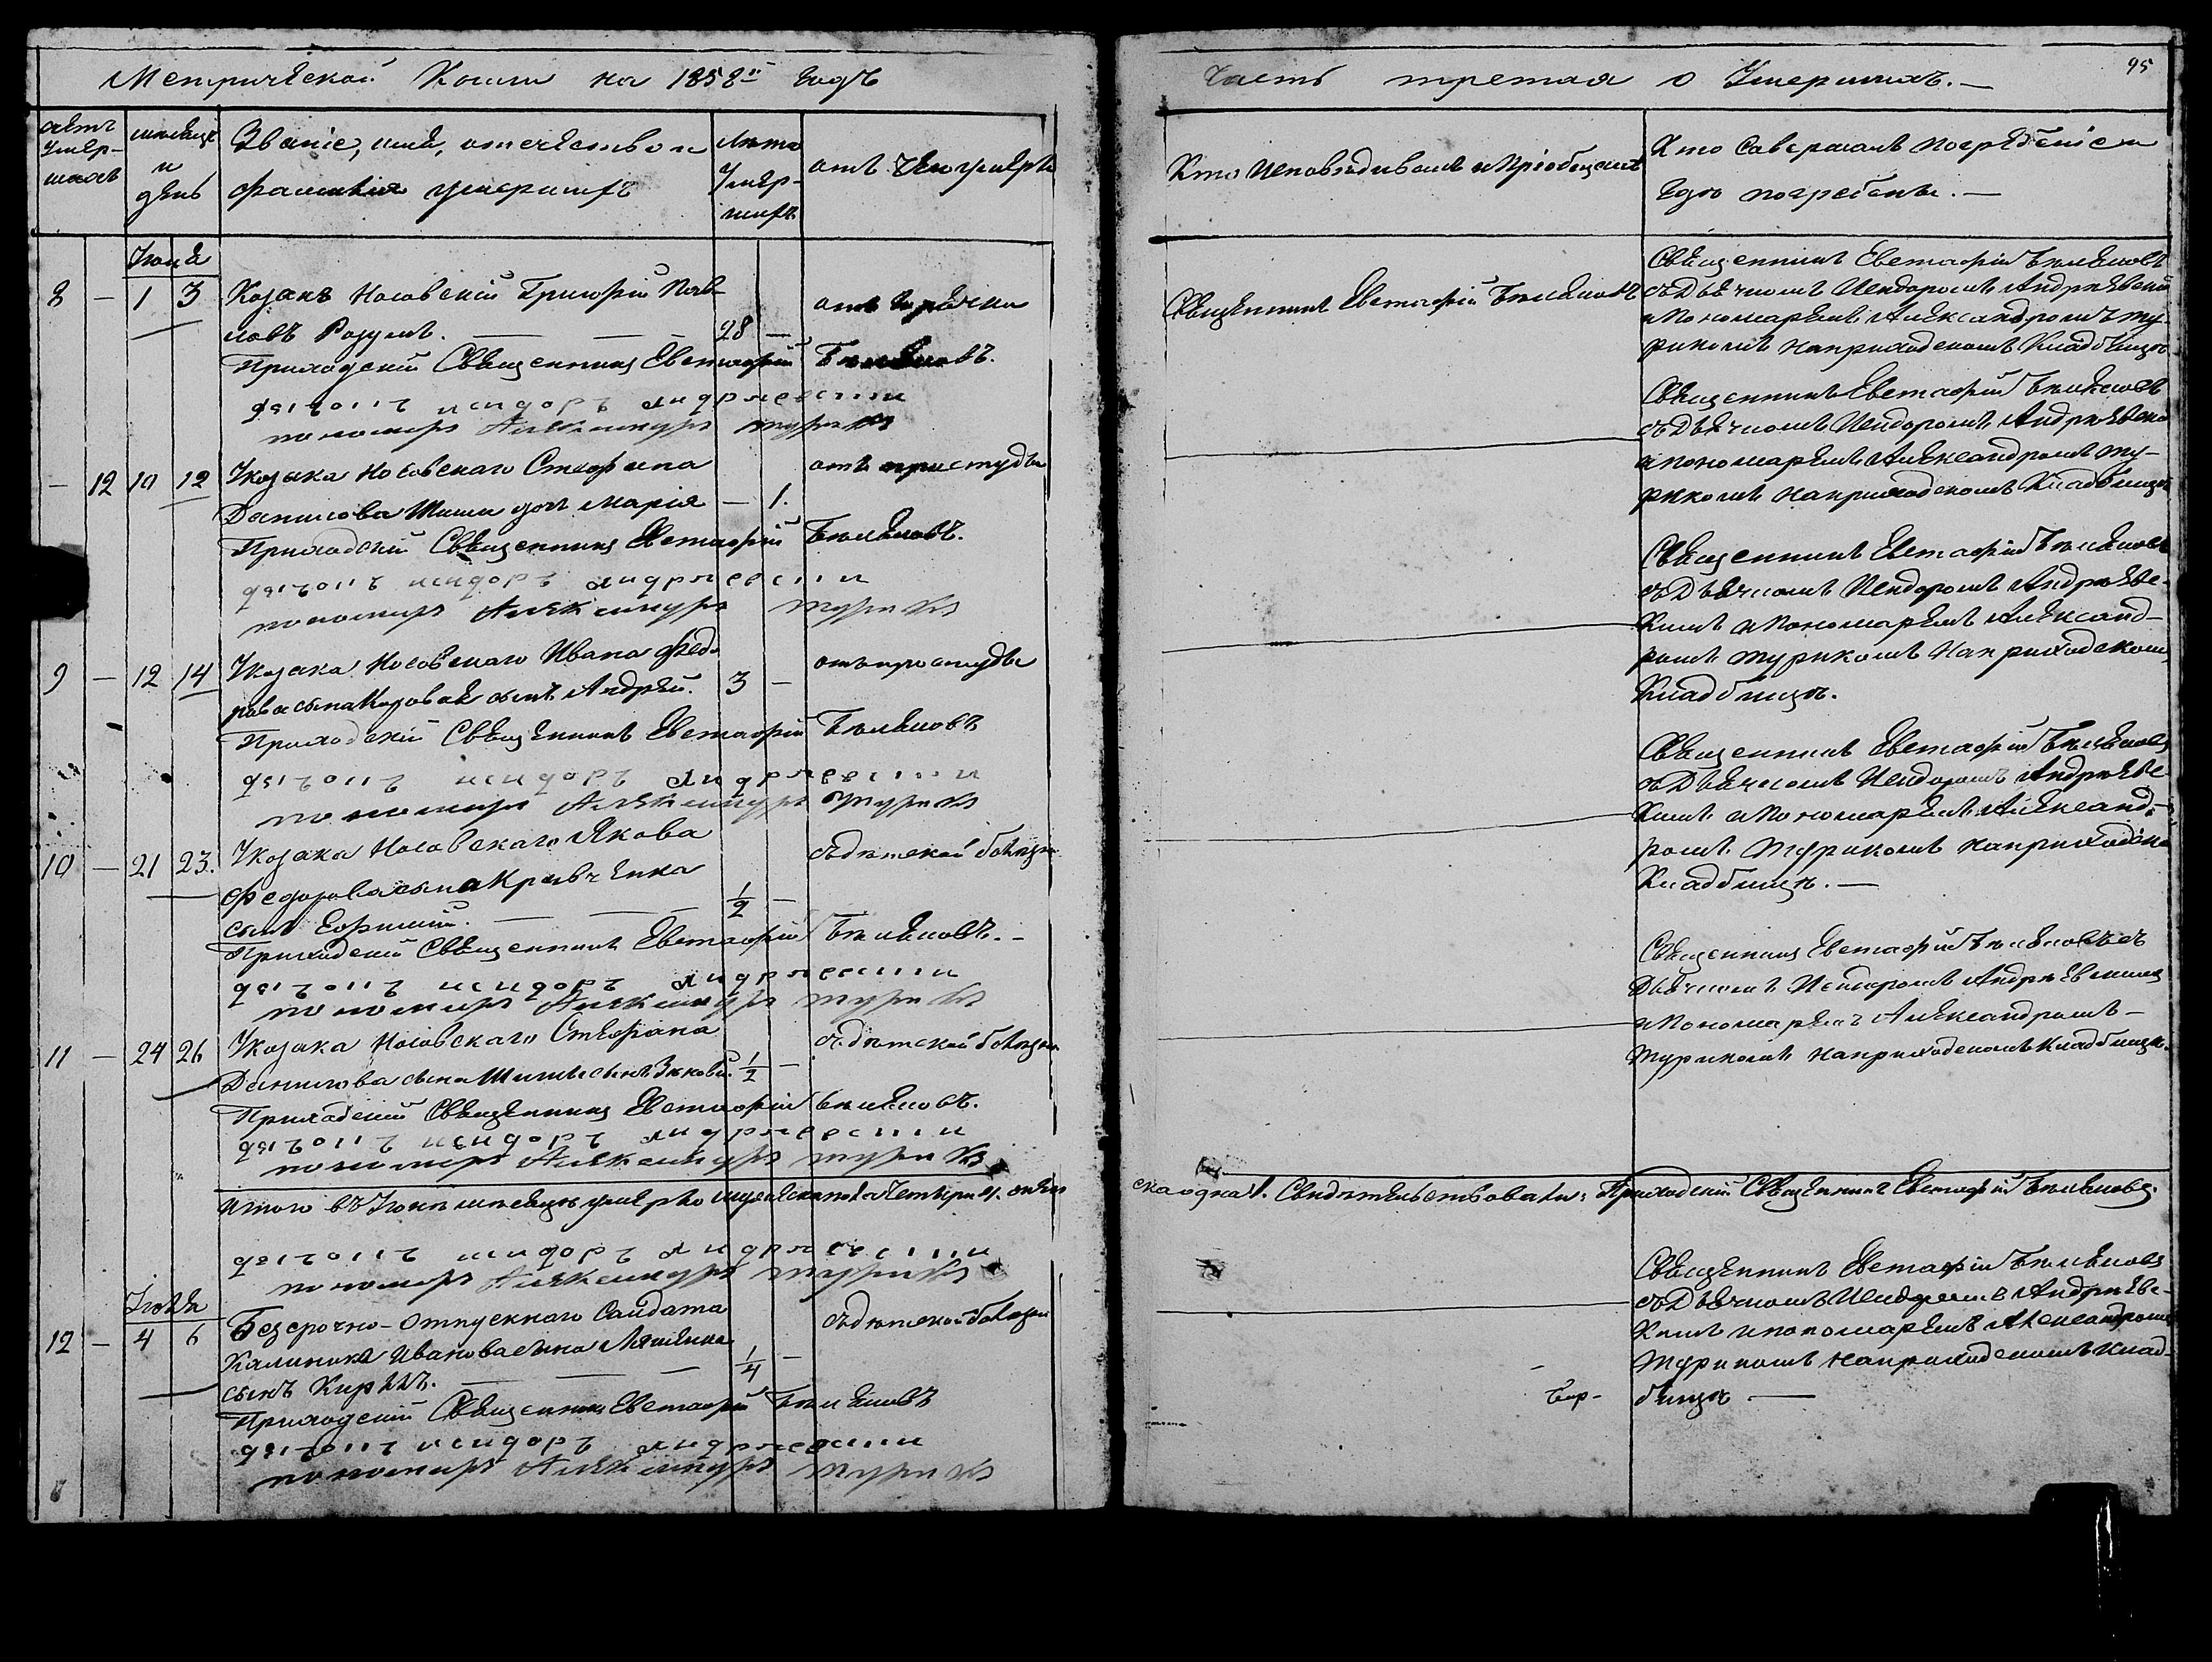 Метрической Книги на 1858й годъ
Часть третая о Умершихъ.
95
счетъ Умер-шихъ
мѣсяцъ и день
Званіе, имя, отечество и фамилія умершихъ
Лета Умер-шихъ
отъ чего умеръ
Кто исповѣдывалъ и пріобщалъ
Кто Савершалъ погребеніе и
Где погребены.
Іюня
8 — 1 3 Козакъ Носовскій Григорій Пав-
ловъ Розумъ. 28 —
отъ горячки
Приходскій Священникъ Евстафій Белѣновъ.
дьячокъ исидоръ андриевскии
пономарь Александръ турикъ
Священникъ Евстафій Белѣновъ
Священникъ Евстафій Белѣновъ
съ Дьячкомъ Исидоромъ Андріевским
и Пономаремъ Александромъ Ту-
рикомъ на приходскомъ Кладбищѣ
— 12 10 12 У козака Носовскаго Стефана
Данилова Шиша дочь Марія — 1.
отъ простуды
Приходскій Священникъ Евстафій Белѣновъ.
дьячокъ исидоръ андриевскии
пономарь Александръ турикъ
Священникъ Евстафій Белѣновъ
съ Дьячкомъ Исидоромъ Андріевским
и пономаремъ Александромъ Ту-
рикомъ на приходскомъ Кладбищѣ
9 — 12 14 У козака Носовскаго Ивана Федо
рова сына сынъ Андрей. 3 —
отъ простуды
Приходскій Священникъ Евстафій Белѣновъ
дьячокъ исидоръ андриевскии
пономарь Александръ турикъ
Священникъ Евстафій Белѣновъ
съ Дьячкомъ Исидоромъ Андріевс-
кимъ и Пономаремъ Александ-
ромъ Турикомъ на приходскомъ
Кладбищѣ.
10 — 21 23. У козака Носовскаго Якова
Федорова сына Кравченка
сынъ Ефимій. 1/2 —
съ дѣтской болѣзни
Приходскій Священникъ Евстафій Белѣновъ. -
дьячокъ исидоръ андриевскии
пономарь Александръ турикъ
Священникъ Евстафій Белѣновъ
съ Дьячкомъ Исидоромъ Андріевс-
кимъ и Пономаремъ Александ-
ромъ Турикомъ на приходско
Кладбищѣ. —
11 — 24 26 У козака Носовскаго Стефана
Данилова сына Шиша сынъ 1/2 —
съ дѣтской болѣзни
Приходскій Священникъ Евстафій Белѣновъ.
дьячокъ исидоръ андриевскии
пономарь Александръ турикъ
Священникъ Евстафій Белѣновъ съ
Дьячкомъ Исидоромъ Андріевскимъ
и Пономаремъ Александромъ —
Турикомъ на приходскомъ Кладбищѣ.
Итого въ Іюнѣ мѣсяцѣ умерло мужеска пола четыри 4. жен
ска одна 1. Свидѣтельствовали: Приходскій Священникъ Евстафій Белѣновъ.
дьячокъ исидоръ андриевскии
пономарь Александръ турикъ
Іюля
12 — 4 6 Безсрочно-Отпускнаго Салдата
Калиника Иванова сына Ляшенка
сынъ Кирилъ. 1/4 —
съ дѣтской болѣзни
Приходскій Священникъ Евстафій Белѣновъ
дьячокъ исидоръ андриевскии
пономарь Александръ турикъ
Священникъ Евстафій Белѣновъ
съ Дьячкомъ Исидоромъ Андріевс-
кимъ и пономаремъ Александромъ
Турикомъ на приходскомъ Клад-
бищѣ —